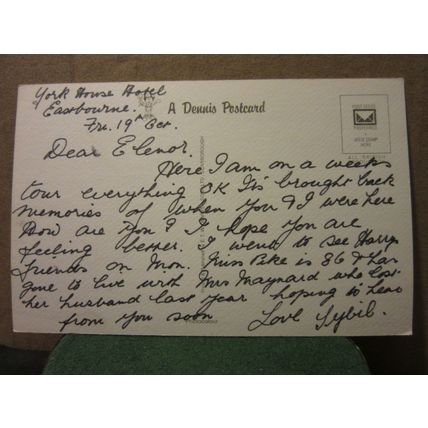 York House Hotel
Eastbourne.
Fri. 19th Oct.
A Dennis Postcard
Dear Elenor.
Here I am on a weeks
tour everything OK Its brought back
memories of when you & I were here
How are you? I hope you are
feeling better. I went to see Harry
friends on Mon. Miss Pike is 86 & has
gone to live with Mrs Maynard who lost
her husband last year hoping to hear
from you soon
Love Sybil.